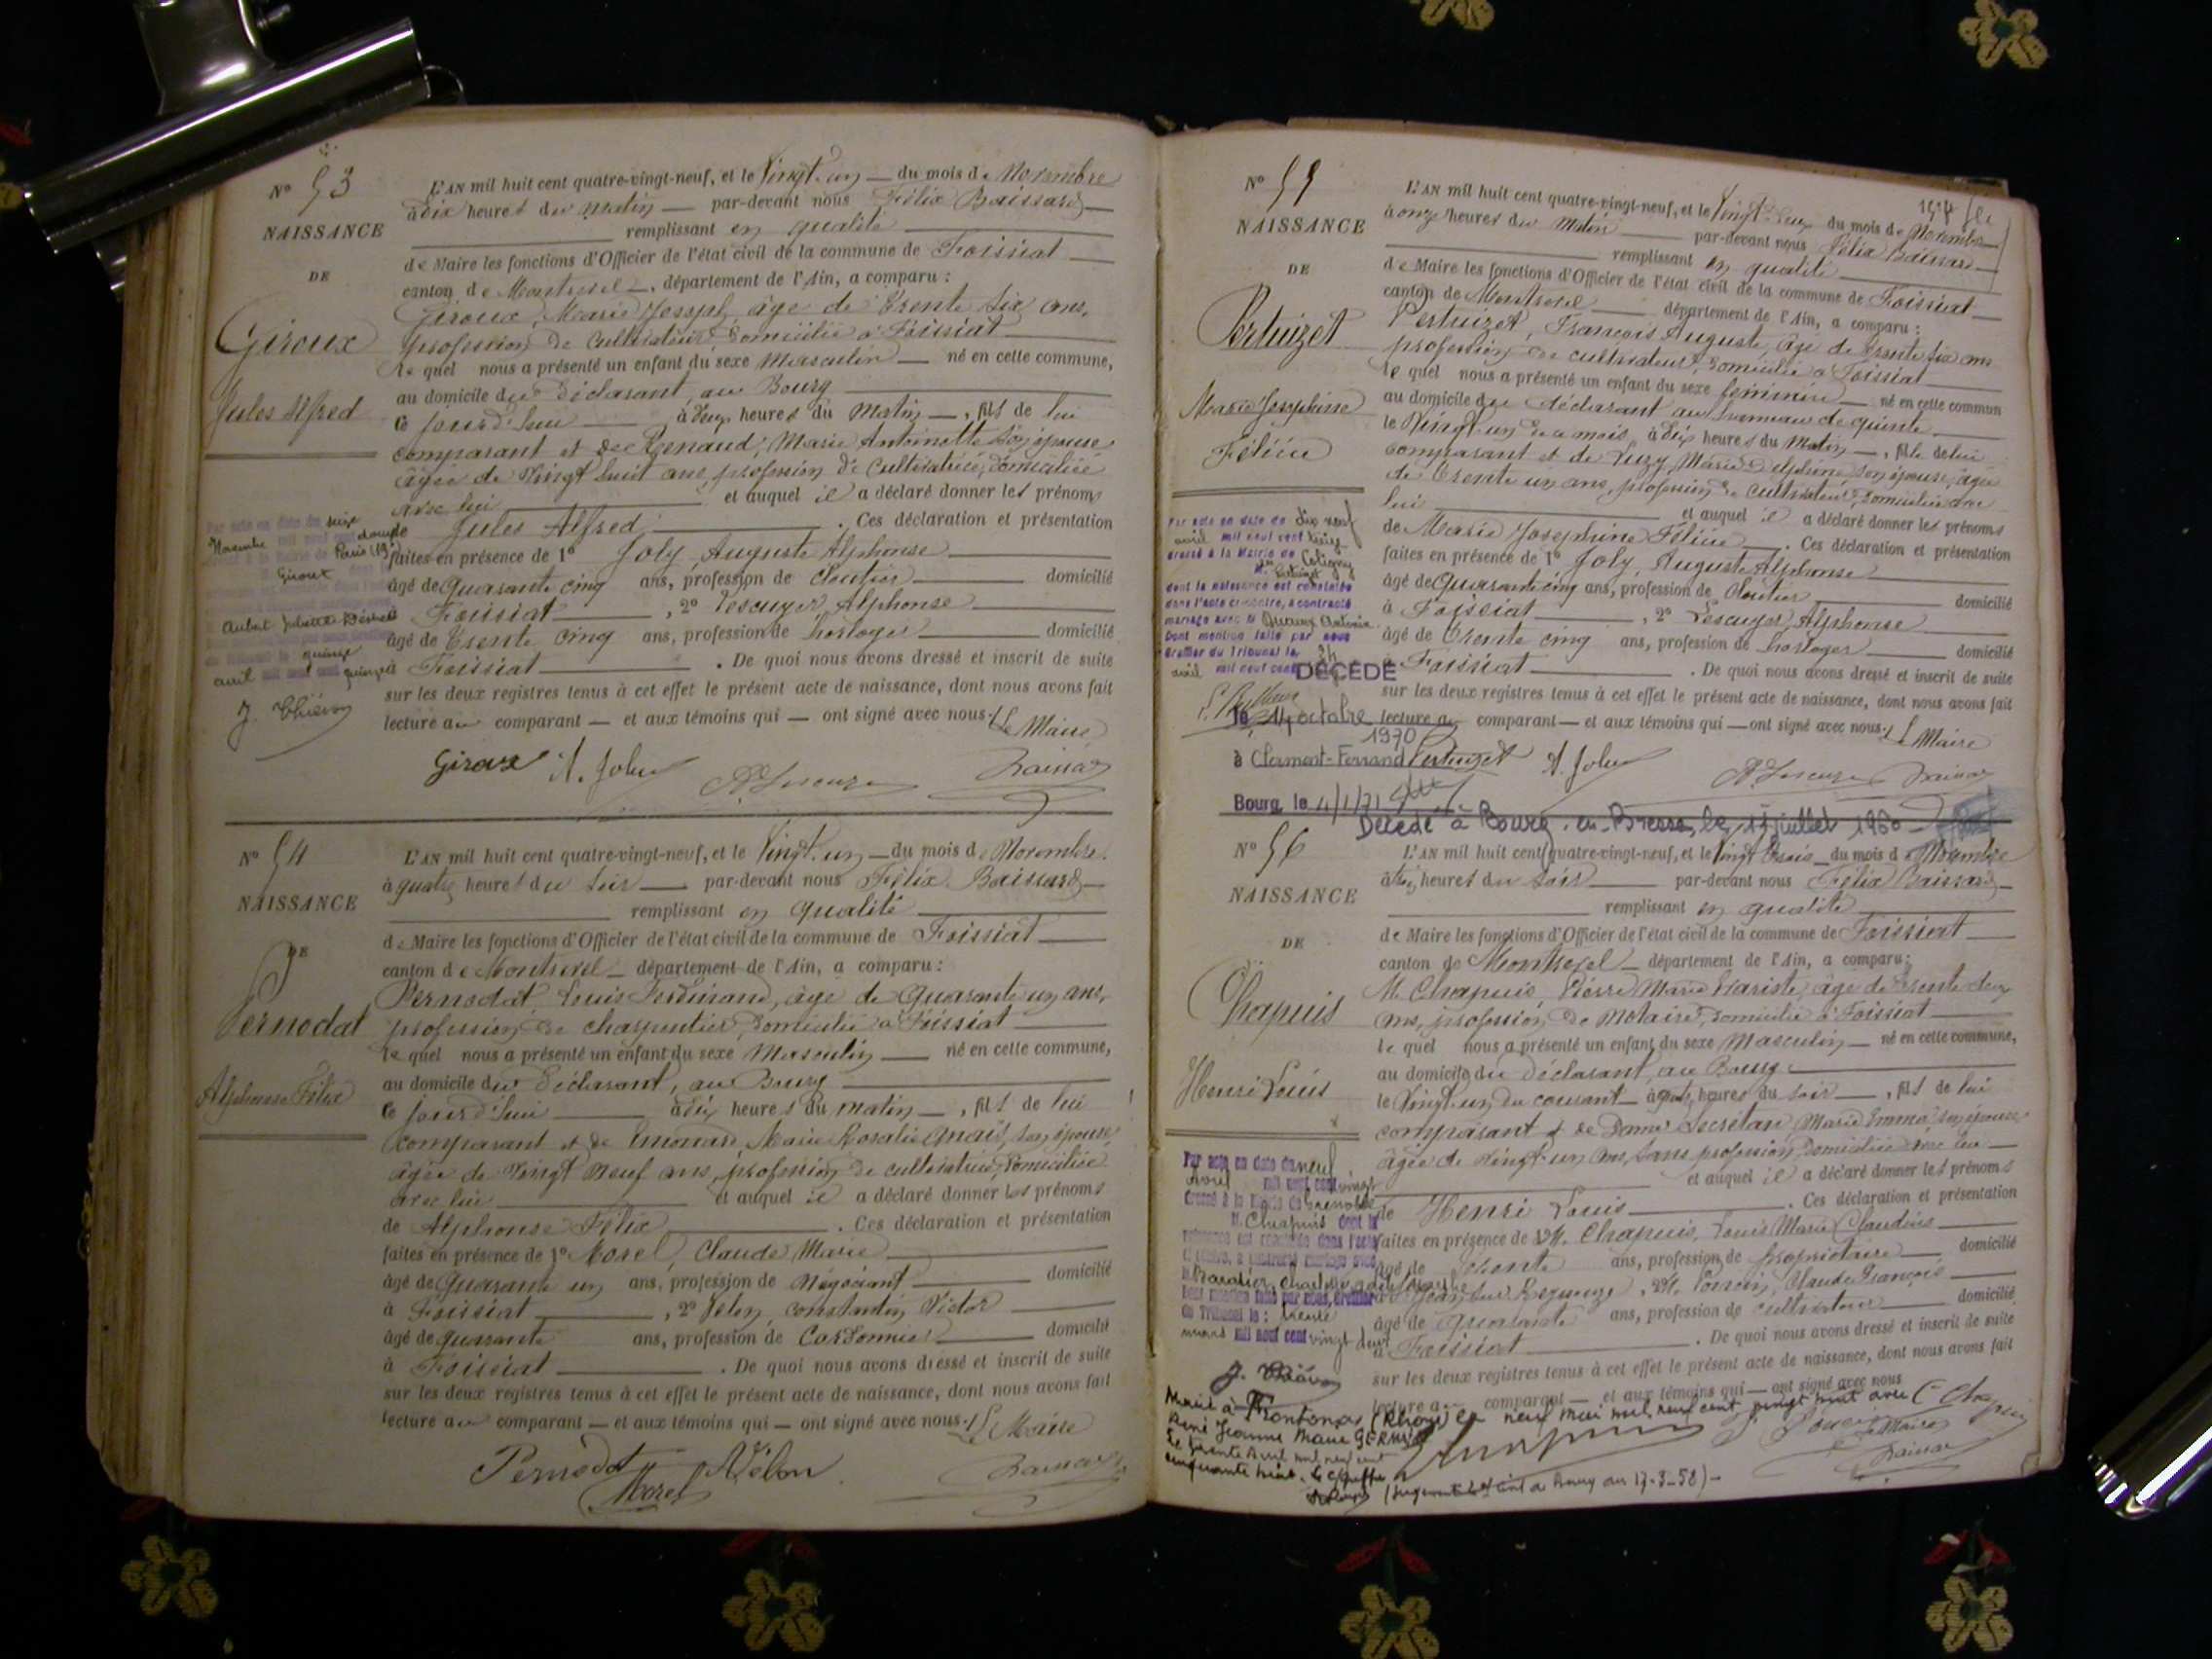 N° 53
NAISSANCE
DE
Giroux
Jules Alfred
L'AN mil huit cent quatre-vingt-neuf, et le Vingt-un du mois de Novembre
à dix heures du matin par-devant nous Félix Baissard
remplissant en qualité
de Maire les fonctions d'Officier de l'état civil de la commune de Foissiat
canton de Montrevel, département de l'Ain, a comparu :
Giroux, Marie Joseph, âgé de trente six ans,
profession de cultivateur, domicilié à Foissiat
le quel nous a présenté un enfant du sexe Masculin né en cette commune,
au domicile du déclarant, au Bourg
ce jourd'hui à deux heures du Matin, fils de lui
comparant et de Renaud, Marie Antoinette son épouse
âgée de Vingt huit ans, profession de cultivatrice, domiciliée
avec lui et auquel il a déclaré donner les prénoms
de Jules Alfred. Ces déclaration et présentation
faites en présence de 1° Joly, Auguste Alphonse
âgé de Quarante cinq ans, profession de Cloutier domicilié
à Foissiat, 2° Lescuyer, Alphonse
âgé de Trente cinq ans, profession de horloger domicilié
à Foissiat. De quoi nous avons dressé et inscrit de suite
sur les deux registres tenus à cet effet le présent acte de naissance, dont nous avons fait
lecture au comparant et aux témoins qui ont signé avec nous. Le Maire
Par acte en date du seize
Novembre mil neuf cent douze
Paris (19e)
Giroux
Aubert Juliette Désirée
quinze
avril mil neuf cent quinze
Giroux A. Joly
N° 54
NAISSANCE
DE
Pernodat
Alphonse Félix
L'AN mil huit cent quatre-vingt-neuf, et le Vingt-un du mois de Novembre
à quatre heures du soir par-devant nous Félix Baissard
remplissant en qualité
de Maire les fonctions d'Officier de l'état civil de la commune de Foissiat
canton de Montrevel département de l'Ain, a comparu :
Pernodat, Louis Ferdinand, âgé de Quarante un ans,
profession de charpentier, domicilié à Foissiat
le quel nous a présenté un enfant du sexe Masculin né en cette commune,
au domicile du déclarant, au Bourg
ce jourd'hui à dix heures du matin, fils de lui
comparant et de Marie Rosalie Anaïs, son épouse
âgée de Vingt neuf ans, profession de cultivatrice, domiciliée
avec lui et auquel il a déclaré donner les prénoms
de Alphonse Félix. Ces déclaration et présentation
faites en présence de 1° Morel, Claude Marie
âgé de Quarante un ans, profession de Négociant domicilié
à Foissiat, 2° Velon, Constantin Victor
âgé de quarante ans, profession de Cordonnier domicilié
à Foissiat. De quoi nous avons dressé et inscrit de suite
sur les deux registres tenus à cet effet le présent acte de naissance, dont nous avons fait
lecture au comparant et aux témoins qui ont signé avec nous. Le Maire
Pernodat Velon
Morel
N° 55
NAISSANCE
DE
Pertuizet
Marie Joséphine
Félicie
L'AN mil huit cent quatre-vingt-neuf, et le Vingt-deux du mois de Novembre
à onze heures du Matin par-devant nous Félix Baissard
remplissant en qualité
de Maire les fonctions d'Officier de l'état civil de la commune de Foissiat
canton de Montrevel département de l'Ain, a comparu :
Pertuizet, François Auguste, âgé de trente six ans
profession de cultivateur, domicilié à Foissiat
le quel nous a présenté un enfant du sexe féminin né en cette commun
au domicile du déclarant au hameau de
le Vingt-un de ce mois, à dix heures du Matin, fille de lui
comparant et de Luzy, Marie Delphine son épouse, âgée
de Trente un ans, profession de cultivateur, domiciliée avec
lui et auquel il a déclaré donner les prénoms
de Marie Joséphine Félicie. Ces déclaration et présentation
faites en présence de 1° Joly, Auguste Alphonse
âgé de Quarante cinq ans, profession de Cloutier domicilié
à Foissiat, 2° Lescuyer, Alphonse
âgé de Trente cinq ans, profession de horloger domicilié
à Foissiat. De quoi nous avons dressé et inscrit de suite
sur les deux registres tenus à cet effet le présent acte de naissance, dont nous avons fait
lecture au comparant et aux témoins qui ont signé avec nous. Le Maire
Par acte en date du dix neuf
avril mil neuf cent
dressé à la Mairie de Coligny
Pertuizet
dont la naissance est constatée
dans l'acte ci-contre, a contracté
mariage avec M Antoine
Dont mention faite par nous
Greffier du Tribunal le 24
avril mil neuf cent
DÉCÉDÉ
le 14 octobre
1970
à Clermont-Ferrand Pertuizet A. Joly
Bourg, le 4/1/71
Décédé à Bourg-en-Bresse, le juillet 1960
N° 56
NAISSANCE
DE
Chapuis
Henri Louis
L'AN mil huit cent quatre-vingt-neuf, et le Vingt trois du mois de Novembre
heures du soir par-devant nous Félix Baissard
remplissant en qualité
de Maire les fonctions d'Officier de l'état civil de la commune de Foissiat
canton de Montrevel département de l'Ain, a comparu :
M. Chapuis, Pierre Marie Evariste, âgé de trente deux
ans, profession de Notaire, domicilié à Foissiat
le quel nous a présenté un enfant du sexe Masculin né en cette commune,
au domicile du déclarant, au Bourg
le Vingt-un du courant à heures du soir, fils de lui
comparant et de Dame Secrétan, Marie Emma, son épouse
âgée de Vingt-un ans, sans profession, domiciliée avec lui
et auquel il a déclaré donner les prénoms
de Henri Louis. Ces déclaration et présentation
faites en présence de 1° M. Chapuis, Louis Marie Claudius
âgé de trente ans, profession de propriétaire domicilié
à sur Reyssouze, 2° M. Poncin, Claude François
âgé de Quarante ans, profession de cultivateur domicilié
à Foissiat. De quoi nous avons dressé et inscrit de suite
sur les deux registres tenus à cet effet le présent acte de naissance, dont nous avons fait
lecture au comparant et aux témoins qui ont signé avec nous
Par acte en date du neuf
Avril mil neuf cent vingt
dressé à la Mairie de Grenoble
M. Chapuis dont la
naissance est constatée dans l'acte
ci-contre, a contracté mariage avec
Dont mention faite par nous, Greffier
du Tribunal le : trente
mars mil neuf cent vingt deux
Marié à (Rhône) le neuf mai mil neuf cent vingt huit avec
Jeanne Marie
Le trente Avril mil neuf cent
cinquante huit. Le Greffier
Le Maire